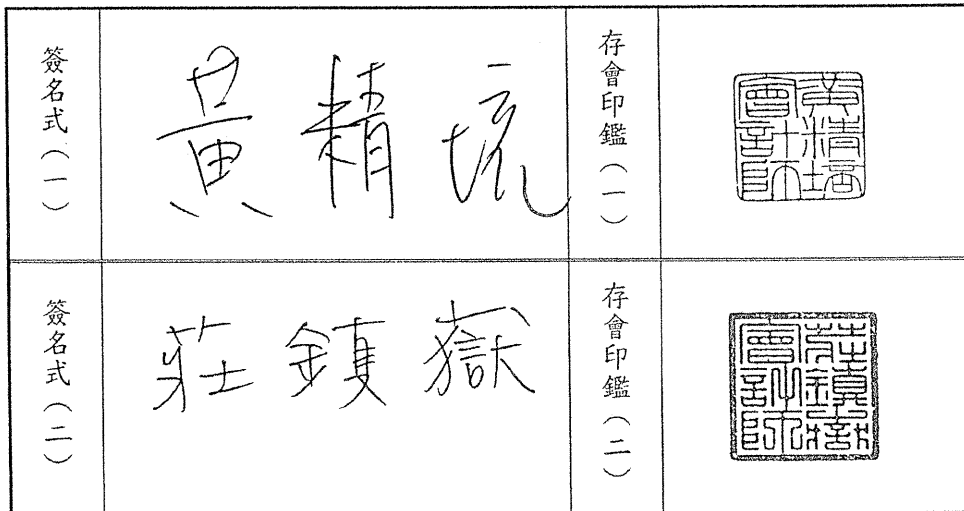 簽名式（一）
黃精培
存會印鑑（一）
黃精培
會計師
簽名式（二）
莊鎮嶽
存會印鑑（二）
莊鎮嶽
會計師